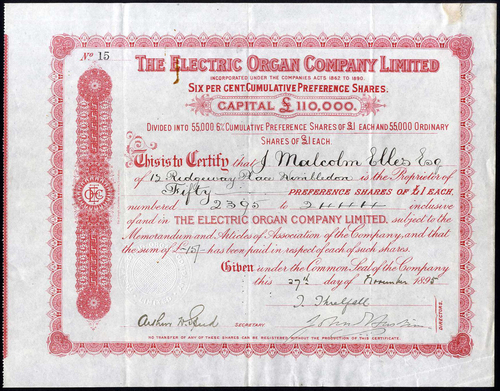 No 15
THE ELECTRIC ORGAN COMPANY LIMITED
INCORPORATED UNDER THE COMPANIES ACTS 1862 TO 1890.
SIX PER CENT. CUMULATIVE PREFERENCE SHARES.
CAPITAL £110,000.
DIVIDED INTO 55,000 6% CUMULATIVE PREFERENCE SHARES OF £1 EACH AND 55,000 ORDINARY
SHARES OF £1 EACH.
This is to Certify that J. Malcolm Elles Esq
of 12 Ridgeway Place Wimbledon is the Proprietor of
Fifty PREFERENCE SHARES OF £1 EACH,
numbered 2395 to 2444 inclusive
of and in THE ELECTRIC ORGAN COMPANY LIMITED, subject to the
Memorandum and Articles of Association of the Company, and that
the sum of £ -15/- has been paid in respect of each of such shares.
Given under the Common Seal of the Company
this 27th day of November 1895
J. Threlfall
DIRECTORS.
Arthur SECRETARY John
NO TRANSFER OF ANY OF THESE SHARES CAN BE REGISTERED WITHOUT THE PRODUCTION OF THIS CERTIFICATE.